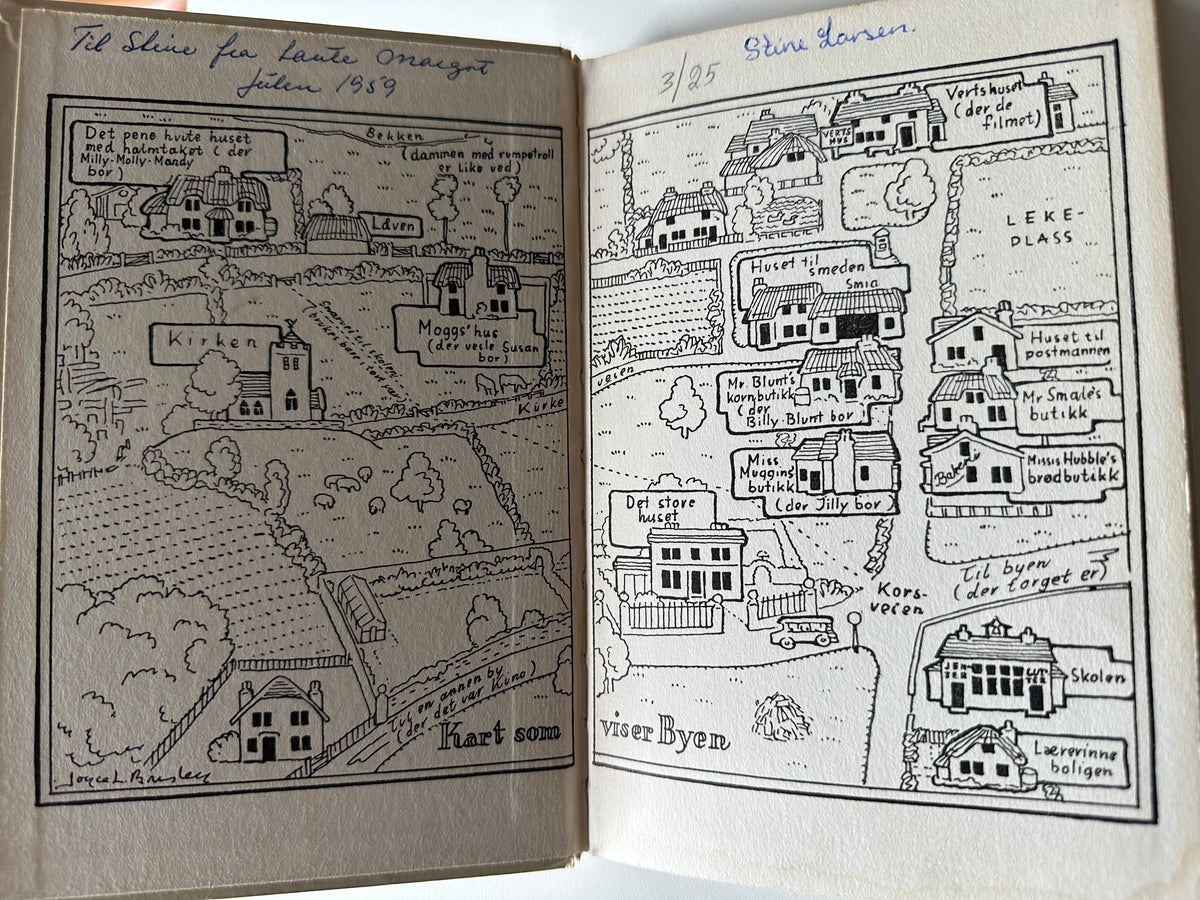 Til Stine fra tante Margot
Julen 1959
Det pene hvite huset
med halmtaket (der
Milly-Molly-Mandy
bor)
Bekken
(dammen med rumpetroll
er like ved)
Låven
Moggs' hus
(der vesle Susan
bor)
Snarvei til skolen
(brukt bare i tørt vær)
Kirken
Kirke
Til en annen by
(der det var Kino)
Kart som
Joyce L. Brisley
3/25
Stine Larsen.
Vertshuset
(der de
filmet)
VERTS
HUS
LEKE-
PLASS
Huset til
smeden
Smia
Huset til
postmannen
veien
Mr. Blunt's
kornbutikk
(der
Billy-Blunt bor)
Mr Smale's
butikk
Miss
Muggins'
butikk
(der Jilly bor)
Bakeri
Missis Hubble's
brødbutikk
Det store
huset
Til byen
(der torget er)
Kors-
veien
JEN-
TER
GUT
TER
Skolen
viser Byen
Lærerinne
boligen